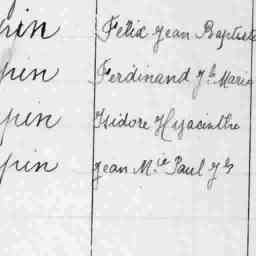 pin Felix Jean Baptiste
pin Ferdinand Jh Marie
pin Isidore Hyacinthe
pin Jean M.ie Paul Jh